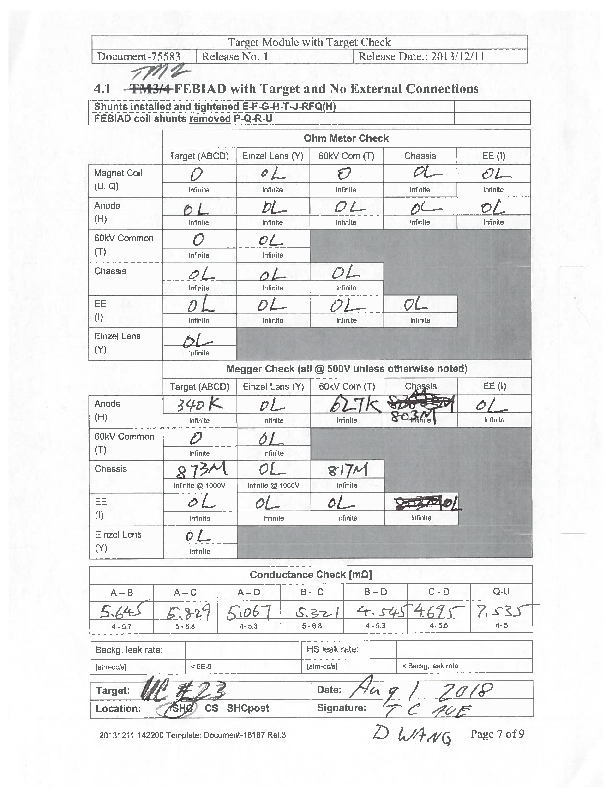 Target Module with Target Check
Document-75583 Release No. 1 Release Date.: 2013/12/11
TM2
4.1 TM3/4 FEBIAD with Target and No External Connections
Shunts installed and tightened E-F-G-H-T-J-RFQ(H)
FEBIAD coil shunts removed P-Q-R-U
Ohm Meter Check
Target (ABCD) Einzel Lens (Y) 60kV Com (T) Chassis EE (I)
Magnet Coil (U, Q) 0 OL 0 OL OL
Infinite Infinite Infinite Infinite Infinite
Anode (H) OL OL OL OL OL
Infinite Infinite Infinite Infinite Infinite
60kV Common (T) 0 OL
Infinite Infinite
Chassis OL OL OL
Infinite Infinite Infinite
EE (I) OL OL OL OL
Infinite Infinite Infinite Infinite
Einzel Lens (Y) OL
Infinite
Megger Check (all @ 500V unless otherwise noted)
Target (ABCD) Einzel Lens (Y) 60kV Com (T) Chassis EE (I)
Anode (H) 340K OL 627K 803M OL
Infinite Infinite Infinite Infinite Infinite
60kV Common (T) 0 OL
Infinite Infinite
Chassis 873M OL 817M
Infinite @ 1000V Infinite @ 1000V Infinite
EE (I) OL OL OL OL
Infinite Infinite Infinite Infinite
Einzel Lens (Y) OL
Infinite
Conductance Check [mΩ]
A – B A – C A – D B - C B – D C - D Q-U
5.645 5.829 5.067 5.321 4.545 4.695 7.535
4 - 5.7 5 - 5.8 4 - 5.3 5 - 6.8 4 - 5.3 4 - 5.6 4-5
Backg. leak rate: HS leak rate:
[atm-cc/s] [atm-cc/s] < Backg. leak rate
Target: UC #23 Date: Aug 1 2018
Location: SHC CS SHCpost Signature:
20131211 142200 Template: Document-18187 Rel.3 D WANG Page 7 of 9